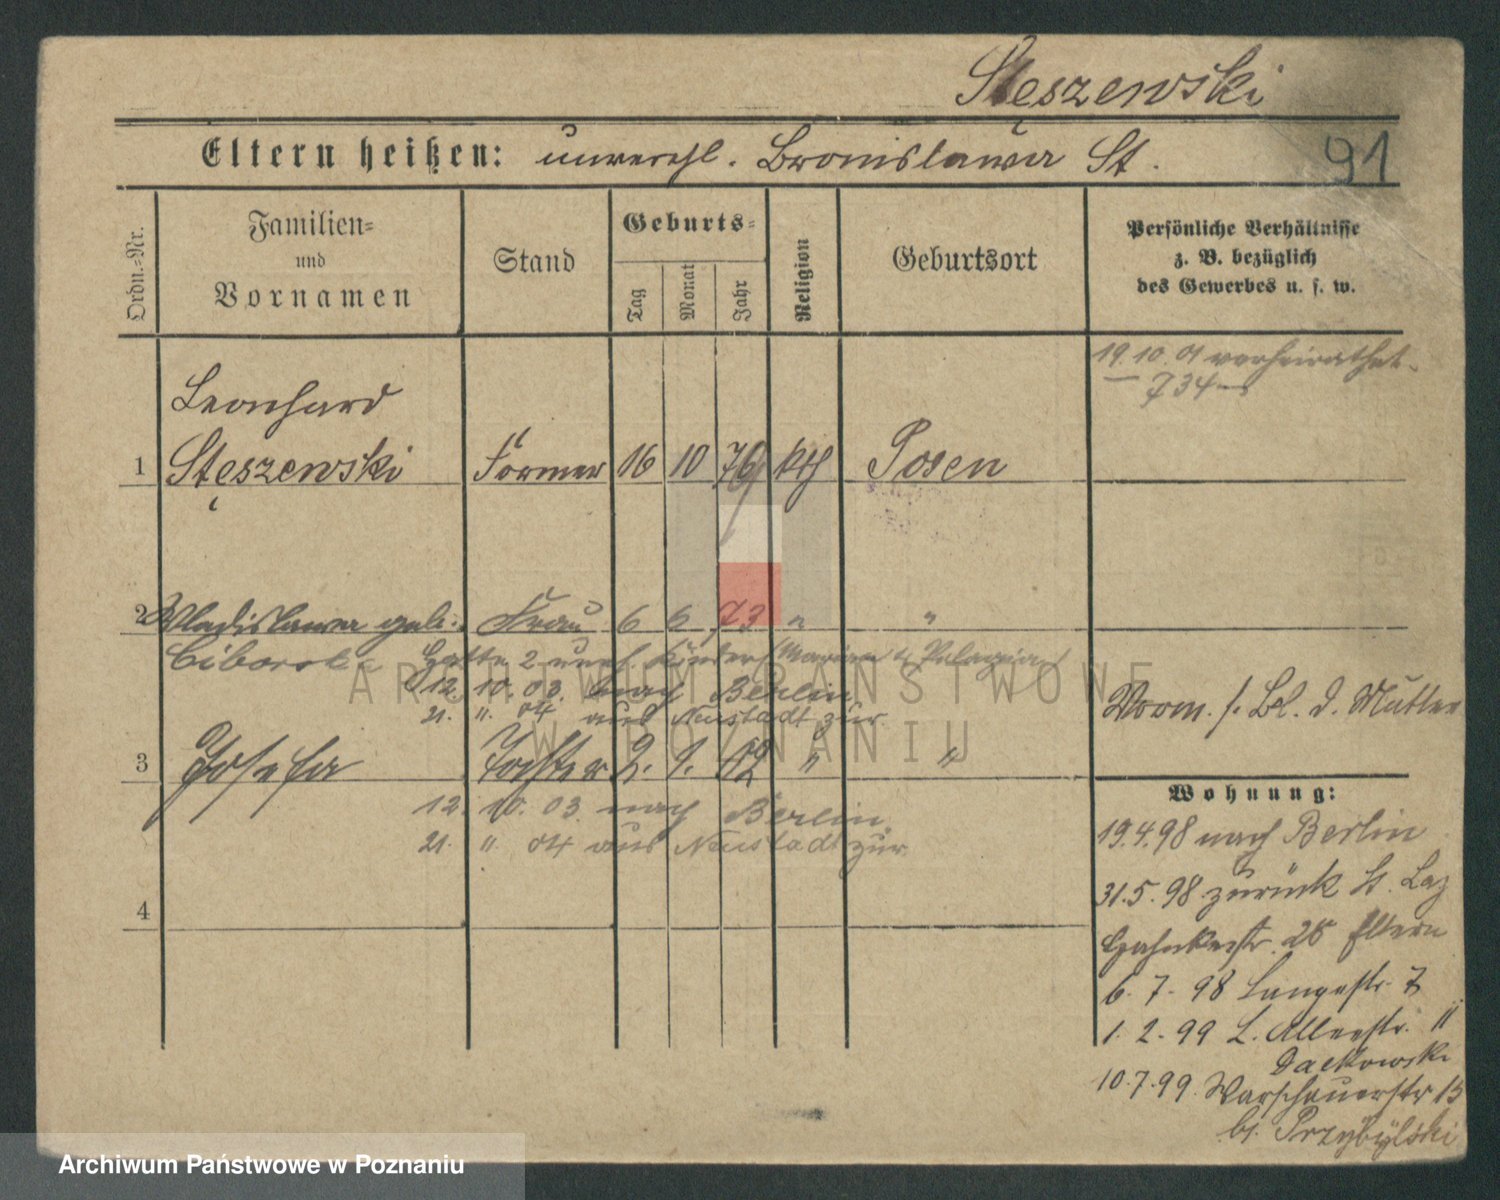 Stęszewski
Eltern heißen: unverehl. Bronislawa St.
91
Ordn.-Nr.
Familien-
und
Vornamen
Stand
Geburts-
Tag
Monat
Jahr
Religion
Geburtsort
Persönliche Verhältnisse
z. B. bezüglich
des Gewerbes u. s. w.
19.10.01 verheirathet.
734
Leonhard
1 Stęszewski Former 16 10 76 kth Posen
2 Wladislawa geb. Frau 6 6 73 " "
Ciborska 2 unehl. Kinder Marian u. Pelagia
12. 10. 03. nach Berlin
21. " 04 aus Neustadt zur.
Vorm. s. Bl. d. Mutter
3 Josefa Tochter 2. 1. 02 " "
12. 10. 03. nach Berlin
21. " 04 aus Neustadt zur.
4
Wohnung:
19.4.98 nach Berlin
31.5.98 zurück St. Laz
26 Eltern
6. 7. 98 Langestr. 7
1. 2. 99 L. Alleestr. 11
Dackowski
10.7.99. Warschauerstr 15
bei Przybylski
ARCHIWUM PAŃSTWOWE
W POZNANIU
Archiwum Państwowe w Poznaniu